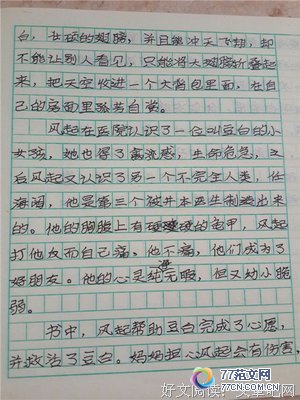 白，壮硕的翅膀，并且能冲天飞翔，却
不能让别人看见，只能将大翅膀折叠起
来，把天空收进一个大背包里面，在自
己的房间里孤芳自赏。
风起在医院认识了一位叫豆白的小
女孩，她也得了禽流感，生命危急，之
后风起又认识了另一个不完全人类，任
海阔，他是第三个被井本医生制造出来
的。他的胸膛上有硬硬的龟甲，风起
打他反而自己痛，他不痛，他们成为了
好朋友。他的心灵纯洁无暇，但又幼小脆
弱。
书中，风起帮助豆白完成了心愿，
并救活了豆白。妈妈担心风起会有伤害，
77范文网
WWW.77CN.COM.CN